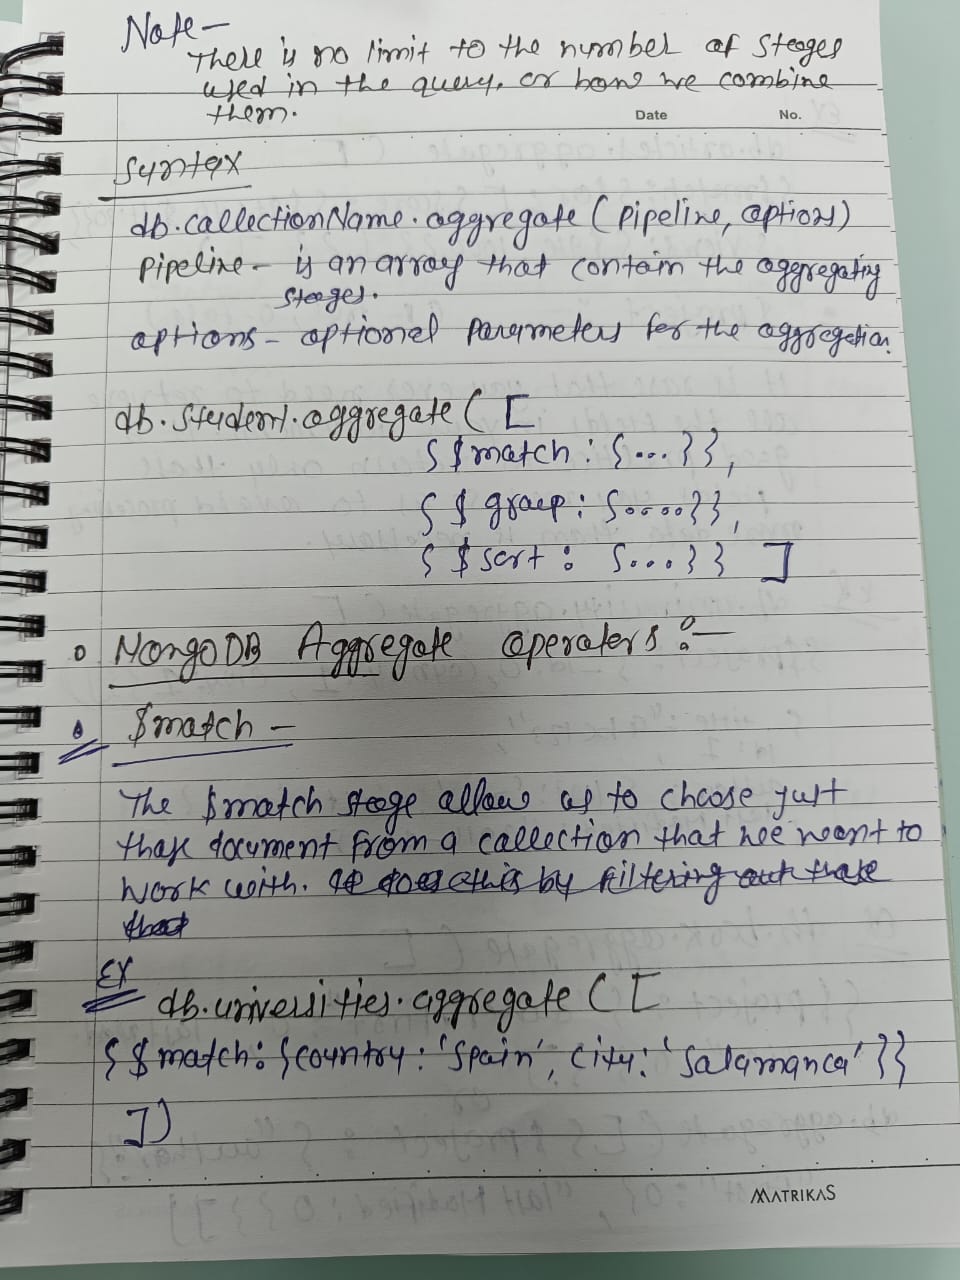 Note -
There is no limit to the number of stages
used in the query, or how we combine
them.
Date No.
Syntax
db.collectionName.aggregate (pipeline, options)
Pipeline - is an array that contain the aggregating
stages.
options - optional parameters for the aggregation.
db.student.aggregate ( [
{ $match : {...}},
{ $ group : {.....}},
{ $ sort : {...}} ]
MongoDB Aggregate operators :-
$match -
The $match stage allows us to choose just
those document from a collection that we want to
work with. It does this by filtering out those
that
EX
db.universities.aggregate ( [
{ $match : {country : 'Spain', city : 'Salamanca' }}
])
MATRIKAS